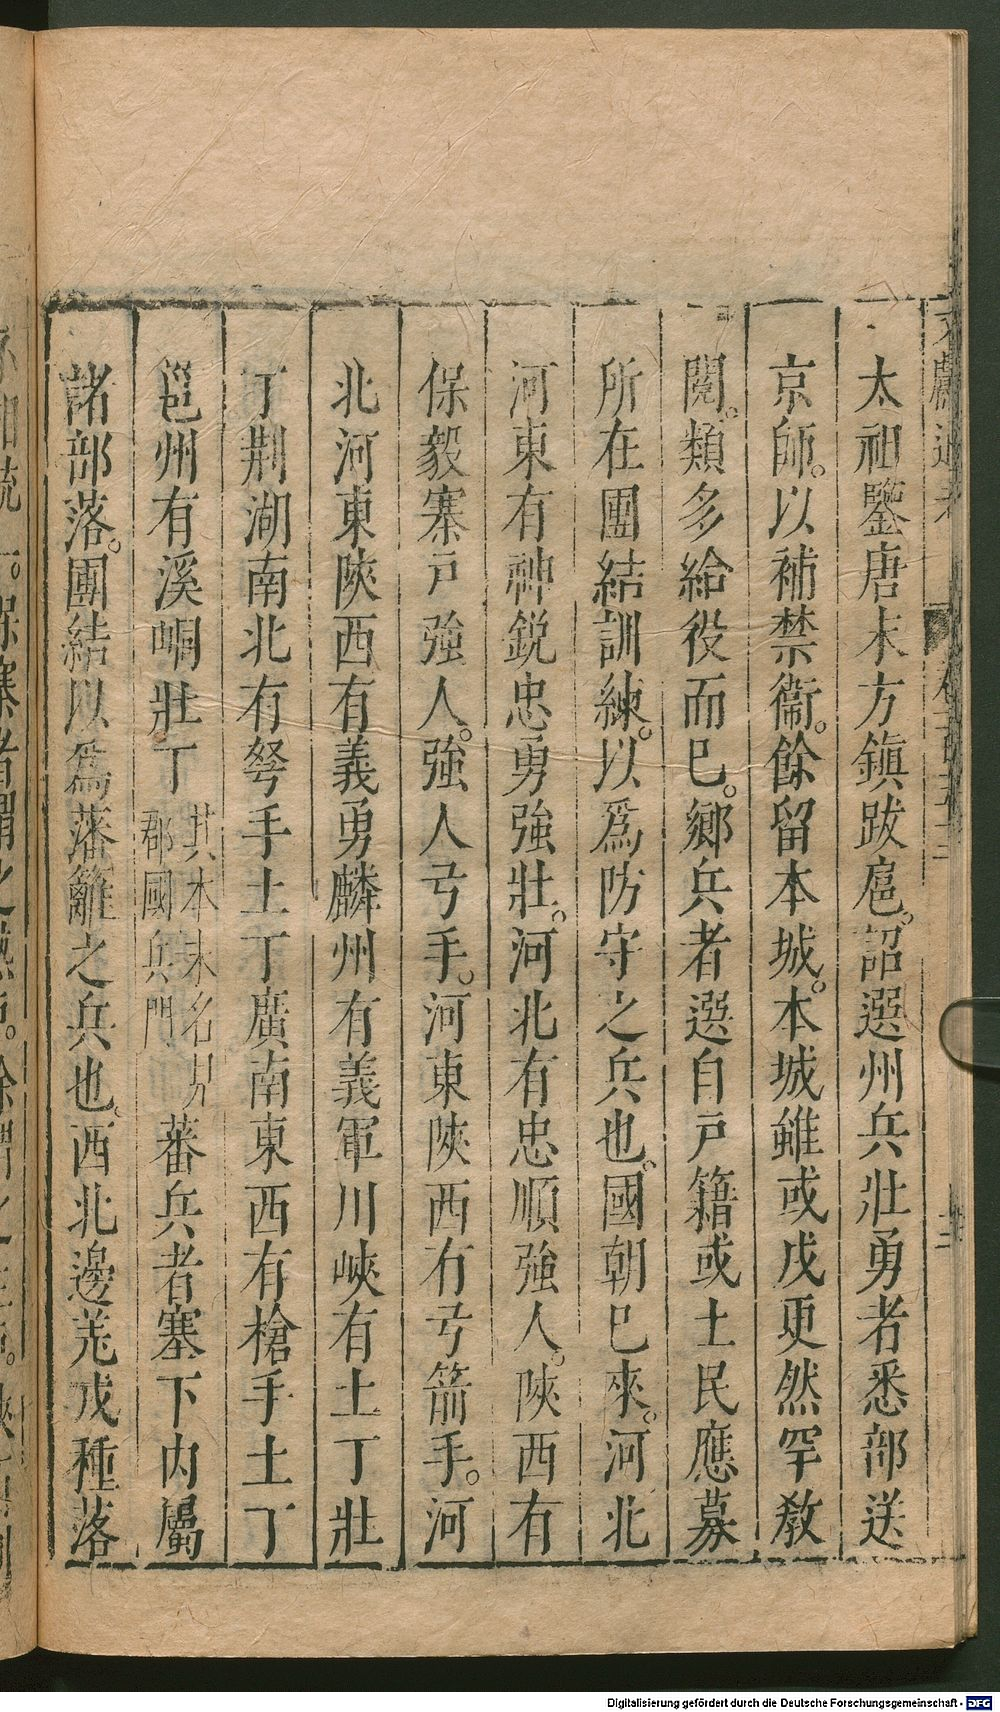 太祖鑒唐末方鎮跋扈。詔選州兵壯勇者悉部送
京師。以補禁衞。餘留本城。本城雖或戍更然罕教
閱。類多給役而已。鄉兵者選自戶籍或土民應募
所在團結訓練。以爲防守之兵也。國朝已來。河北
河東有神鋭忠勇強壯。河北有忠順強人。陝西有
保毅寨戶強人。強人弓手。河東陝西有弓箭手。河
北河東陝西有義勇麟州有義軍川峽有土丁壯
丁荆湖南北有弩手土丁廣南東西有槍手土丁
邕州有溪峒壯丁其本末名見郡國兵門蕃兵者塞下内屬
諸部落。團結以爲藩籬之兵也。西北邊羌戎種落
Digitalisierung gefördert durch die Deutsche Forschungsgemeinschaft - DFG